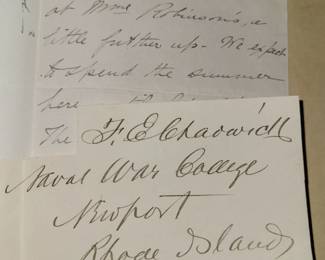 at Mrs Robinson's, a
little further up - We expect
to spend the summer
here
The
F. E. Chadwick
Naval War College
Newport
Rhode Island